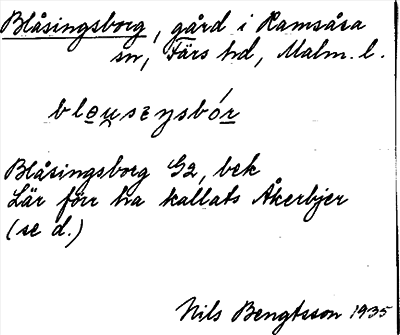 Blåsingsborg, gård i Ramsåsa
sn, Färs hd, Malm. l.
blousęŋsbór
Blåsingsborg G2, bek
Lär förr ha kallats Åkerbjer
(se d.)
Nils Bengtsson 1935